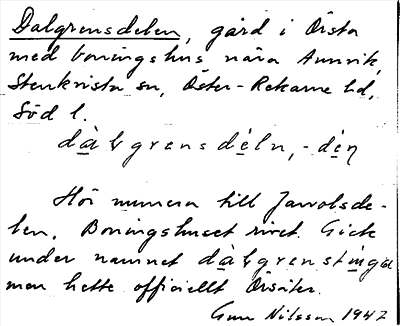 Dalgrensdelen, gård i Örsta
med boningshus nära Aunvik,
Stenkvista sn, Öster-Rekarne hd,
Söd l.
dàlgrensdéln, -dén
Hör numera till Jarrolsde-
len. Boningshuset rivet. Gick
under namnet dàlgrenstinget
men hette officiellt Örsäter.
Gun Nilsson 1942